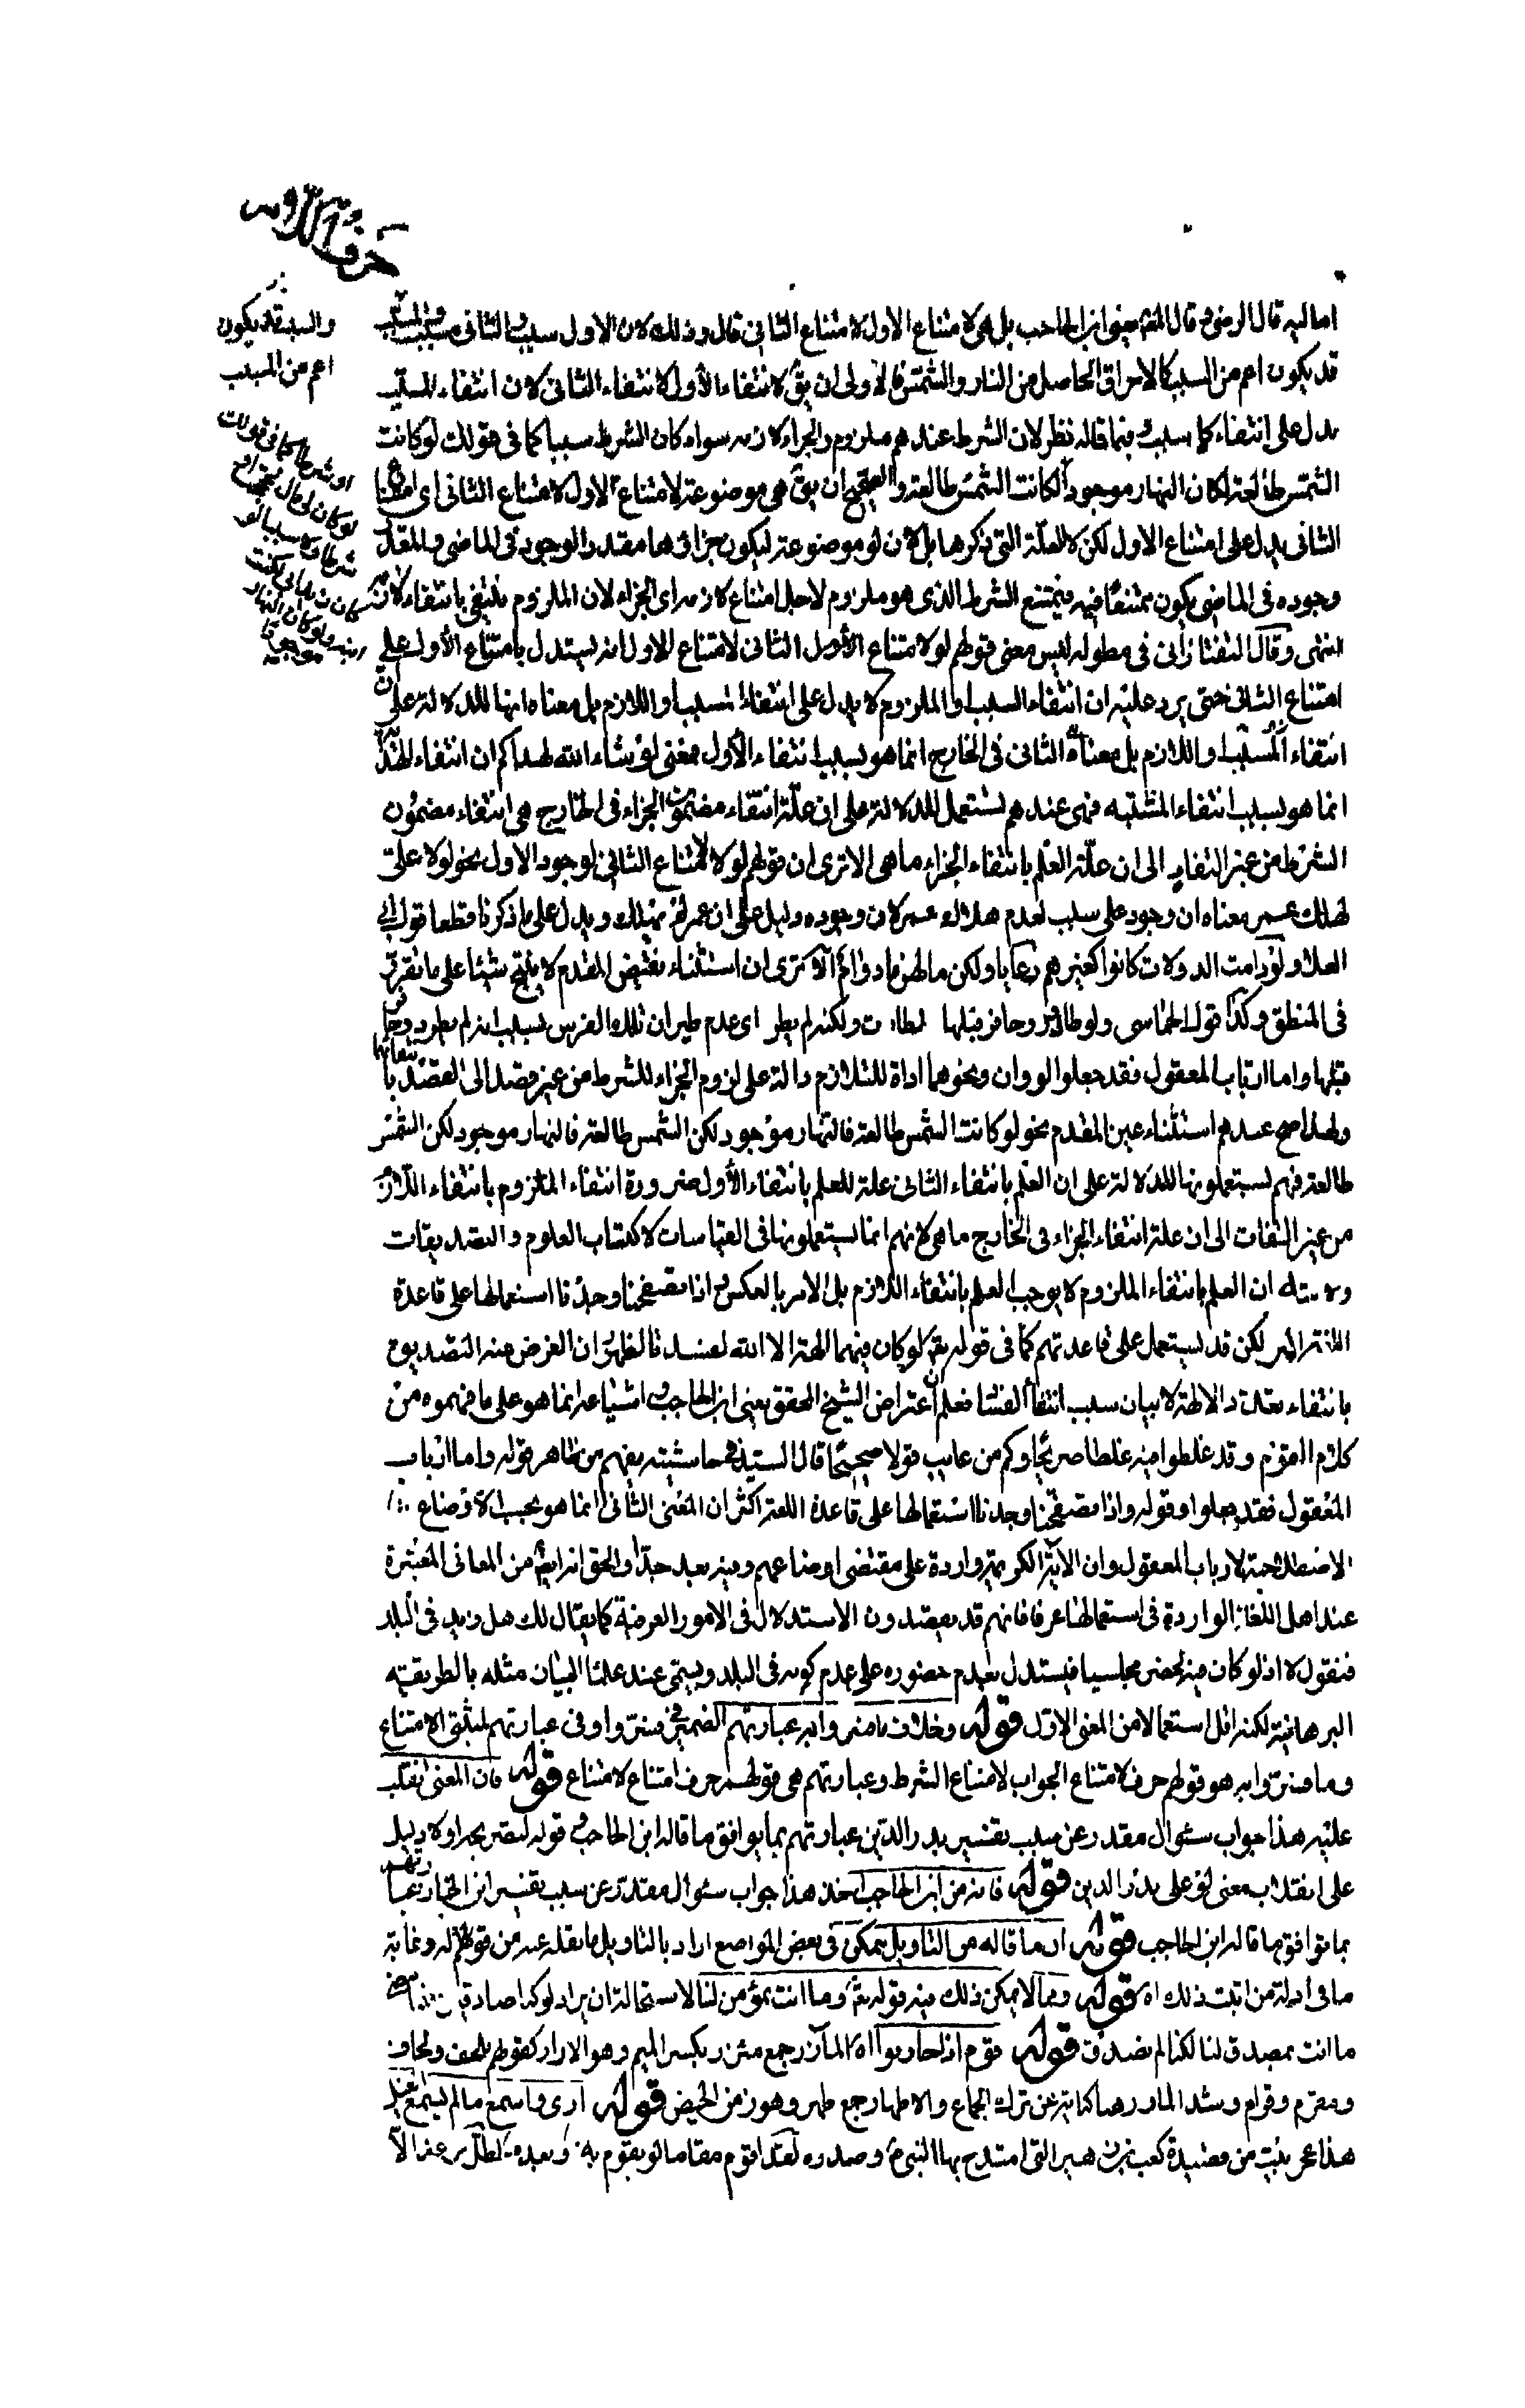 اماليه قال الرضى قال المص يعنى ابن الحاجب بل هى لامتناع الاول لامتناع الثانى قال وذلك لان الاول سبب والثانى مسبب والمسبب
قد يكون اعم من السبب كالاشراق الحاصل من النار والشمس فالاولى ان يق لانتفاء الاول لانتفاء الثانى لان انتفاء المسبب
يدل على انتفاء كل سبب وفيما قاله نظر لان الشرط عندهم ملزوم والجزاء لازمه سواء كان الشرط سببا كما فى قولك لو كانت
الشمس طالعة لكان النهار موجودا لكانت الشمس طالعة والصحيح ان يق هى موضوعة لامتناع الاول لامتناع الثانى اى امتناع
الثانى يدل على امتناع الاول لكن لا للعلة التى ذكرها بل لان لو موضوعة ليكون جزاؤها مقدر الوجود فى الماضى والمقدر
وجوده فى الماضى يكون ممتنعا فيه فيمتنع الشرط الذى هو ملزوم لاجل امتناع لازمه اى الجزاء لان الملزوم ينتفى بانتفاء لازمه
انتهى وقال التفتازانى فى مطوله ليس معنى قولهم لو لامتناع الثانى لامتناع الاول انه يستدل بامتناع الأول على
امتناع الثانى حتى يرد عليه ان انتفاء السبب او الملزوم لا يدل على انتفاء المسبب او اللازم بل معناه انها للدلالة على ان
انتفاء المسبب او اللازم بل معناه الثانى فى الخارج انما هو بسبب انتفاء الأول فمعنى لو شاء الله لهداكم ان انتفاء الهداية
انما هو بسبب انتفاء المشية فهى عندهم تستعمل للدلالة على ان علة انتفاء مضمون الجزاء فى الخارج هى انتفاء مضمون
الشرط من غير التفات الى ان علة العلم بانتفاء الجزاء ما هى الا ترى ان قولهم لولا لامتناع الثانى لوجود الاول نحو لولا على
لهلك عمر معناه ان وجود على سبب لعدم هلاك عمر لا ان وجوده دليل على ان عمر لم يهلك ويدل على ما ذكرنا قطعا قول ابى
العلا ولو دامت الدولات كانوا كغيرهم رعايا ولكن ما لهن دوام الا ترى ان استثناء نقيض المقدم لا ينتج شيئا على ما تقرر
فى المنطق وكذا قول الحماسى ولو طار ذو حافر قبلها لطارت ولكنه لم يطر اى عدم طيران تلك الفرس بسبب انه لم يطر ذو حافر
قبلها واما ارباب المعقول فقد جعلوا لو وان ونحوهما اداة للتلازم دالة على لزوم الجزاء للشرط من غير قصد الى القصد بانتفائهما
ولهذا صح عندهم استثناء عين المقدم نحو لو كانت الشمس طالعة فالنهار موجود لكن الشمس طالعة فالنهار موجود لكن الشمس
طالعة فهم يستعملونها للدلالة على ان العلم بانتفاء الثانى علة للعلم بانتفاء الأول ضرورة انتفاء الملزوم بانتفاء اللازم
من غير التفات الى ان علة انتفاء الجزاء فى الخارج ما هى لانهم انما يستعملونها فى القياسات لاكتساب العلوم والتصديقات
ولا شك ان العلم بانتفاء الملزوم لا يوجب العلم بانتفاء اللازم بل الامر بالعكس واذا تصفحنا وجدنا استعمالها على قاعدة
اللغة اكثر لكن قد يستعمل على قاعدتهم كما فى قوله تع لو كان فيهما الهة الا الله لفسدتا لظهور ان الغرض منه التصديق
بانتفاء تعدد الالهة لا بيان سبب انتفاء الفساد فعلم ان اعتراض الشيخ المحقق يعنى ابن الحاجب واشياعه انما هو على ما فهموه من
كلام القوم وقد غلطوا فيه غلطا صريحا وكم من عايب قولا صحيحا قال السيد فى حاشيته يفهم من ظاهر قوله واما ارباب
المعقول فقد جعلوا وقوله واذا تصفحنا وجدنا استعمالها على قاعدة اللغة اكثر ان المعنى الثانى انما هو بحسب الاوضاع
الاصطلاحية لارباب المعقول وان الاية الكريمة واردة على مقتضى اوضاعهم وفيه بعد جدا والحق انه ايض من المعانى المعتبرة
عند اهل اللغة الواردة فى استعمالها عرفا فانهم قد يقصدون الاستدلال فى الامور العرفية كما يقال لك هل زيد فى البلد
فتقول لا اذ لو كان فيه لحضر مجلسنا فيستدل بعدم حضوره على عدم كونه فى البلد ويسمى عند علماء البيان مثله بالطريقة
البرهانية لكنه اقل استعمالا من المعنى الاول قوله وخلاف ما فسروا به عبارتهم الضمير فى فسروا وفى عبارتهم لمثبتى الامتناع
وما فسروا به هو قولهم حرف لامتناع الجواب لامتناع الشرط وعبارتهم هى قولهم حرف امتناع لامتناع قوله فان المعنى انقلب
عليه هذا جواب سئوال مقدر عن سبب تفسير بدر الدين عبارتهم بما يوافق ما قاله ابن الحاجب قوله لتصريحه اولا دليل
على انقلاب معنى لو على بدر الدين قوله فانه من ابن الحاجب اخذ هذا جواب سئوال مقدر عن سبب تفسير ابن الخباز عبارتهم
بما توافق ما قاله ابن الحاجب قوله ان ما قاله من التاويل يمكن فى بعض المواضع اراد بالتاويل ما نقله عنه من قولهم له وغاية
ما فى ادلة من اثبت ذلك اه قوله ومما لا يمكن ذلك فيه قوله تع وما انت بمؤمن لنا لاستحالة ان يراد لو كنا صادقين
ما انت بمصدق لنا لكنا لم نصدق قوله قوم اذا حاربوا اه المآزر جمع مئزر بكسر الميم وهو الازار كقولهم ملحف ولحاف
ومقرم وقرام وشد المازر هنا كناية عن ترك الجماع والاطهار جمع طهر وهو زمن الحيض قوله ارى واسمع ما لم يسمع الفيل
هذا عجز بيت من قصيدة كعب بن زهير التى امتدح بها النبى وصدره لقد اقوم مقاما لو يقوم به وبعده لظل يرعد الا
والسبب قد يكون
اعم من المسبب